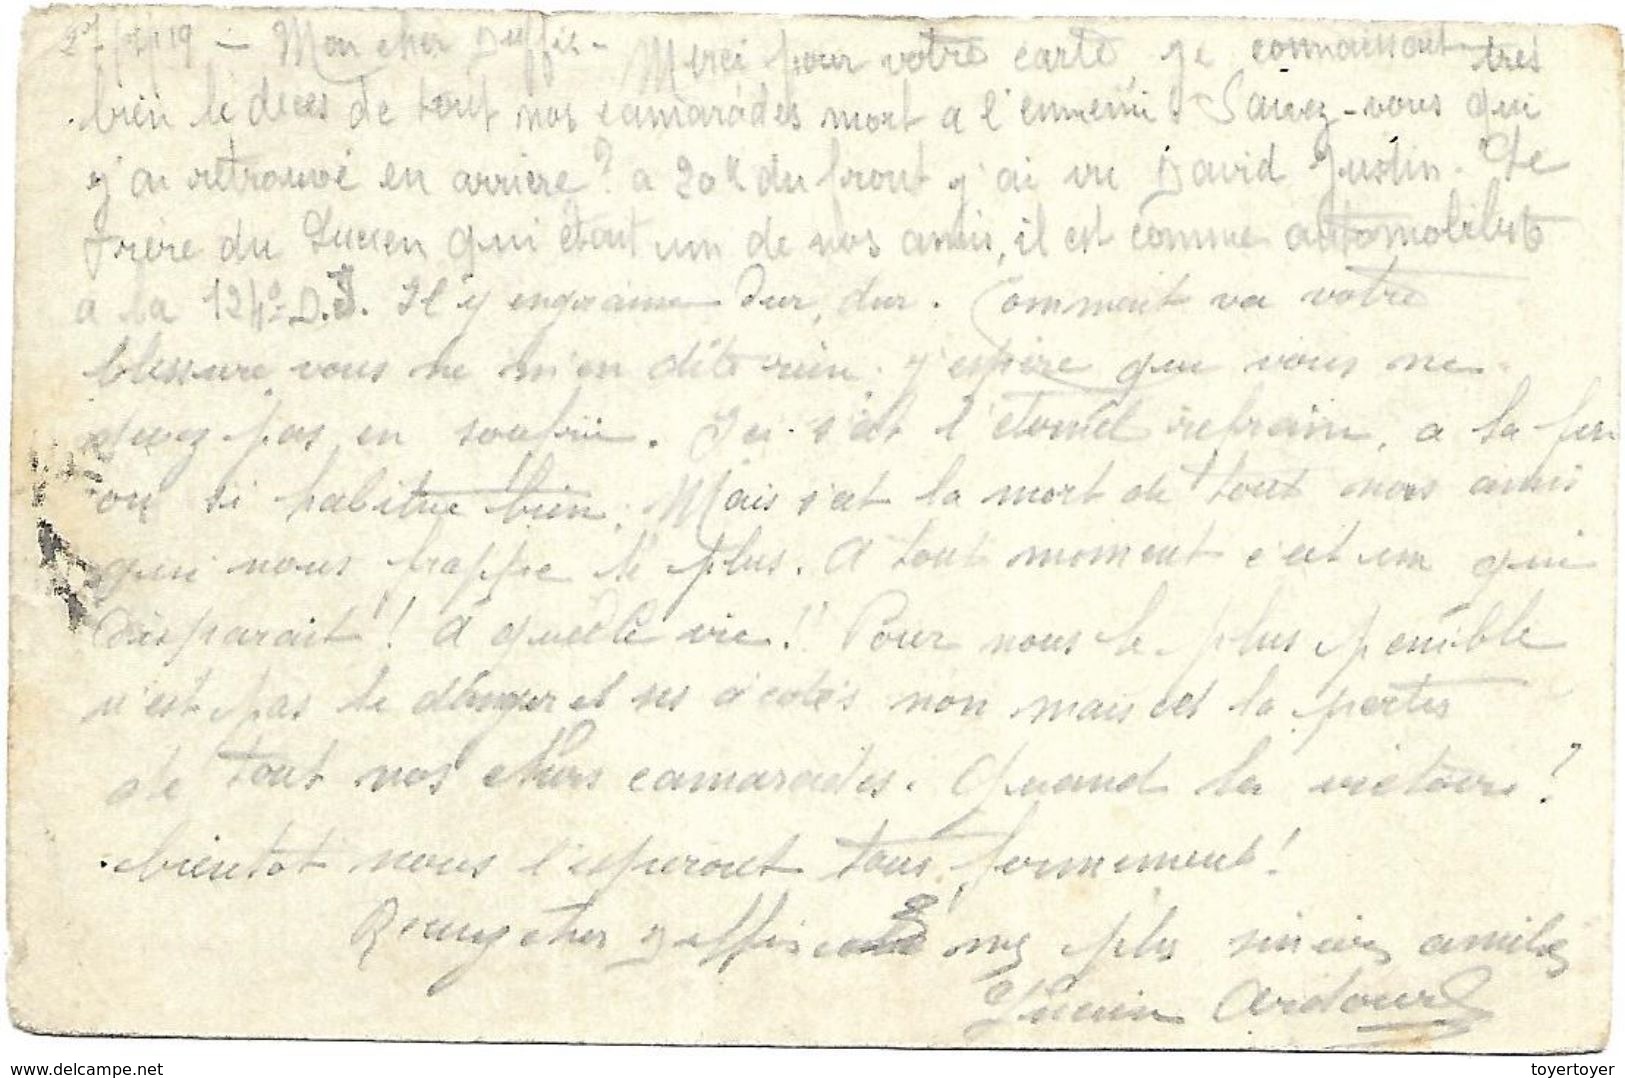 Mon cher Deffis - Merci pour votre carte, je connaissait très
bien le deces de tout nos camarades mort a l'ennemi. Savez-vous qui
j'ai retrouvé en arrière? a 20k du front j'ai vu David Justin. Le
frère du Lucien qui était un de nos amis, il est comme automobiliste
a la 124e D.I. Il y engraisse dur, dur. Comment va votre
blessure, vous ne m'en dite rien. j'espère que vous ne
pas en soufrir. Ici s'est l'éternel refrain, a la fin
on si habitue bien. Mais s'est la mort de tout nos amis
qui nous frappe le plus. A tout moment c'est un qui
disparait! A quelle vie! Pour nous le plus pénible
n'est pas le danger et ses a'cotés non mais est la pertes
de tout nos chers camarades. Quand la victoire?
bientôt nous l'esperont tous fermement!
Recevez cher Deffis mes plus sincères amitiés
Lucien Ardour
www.delcampe.net
toyertoyer